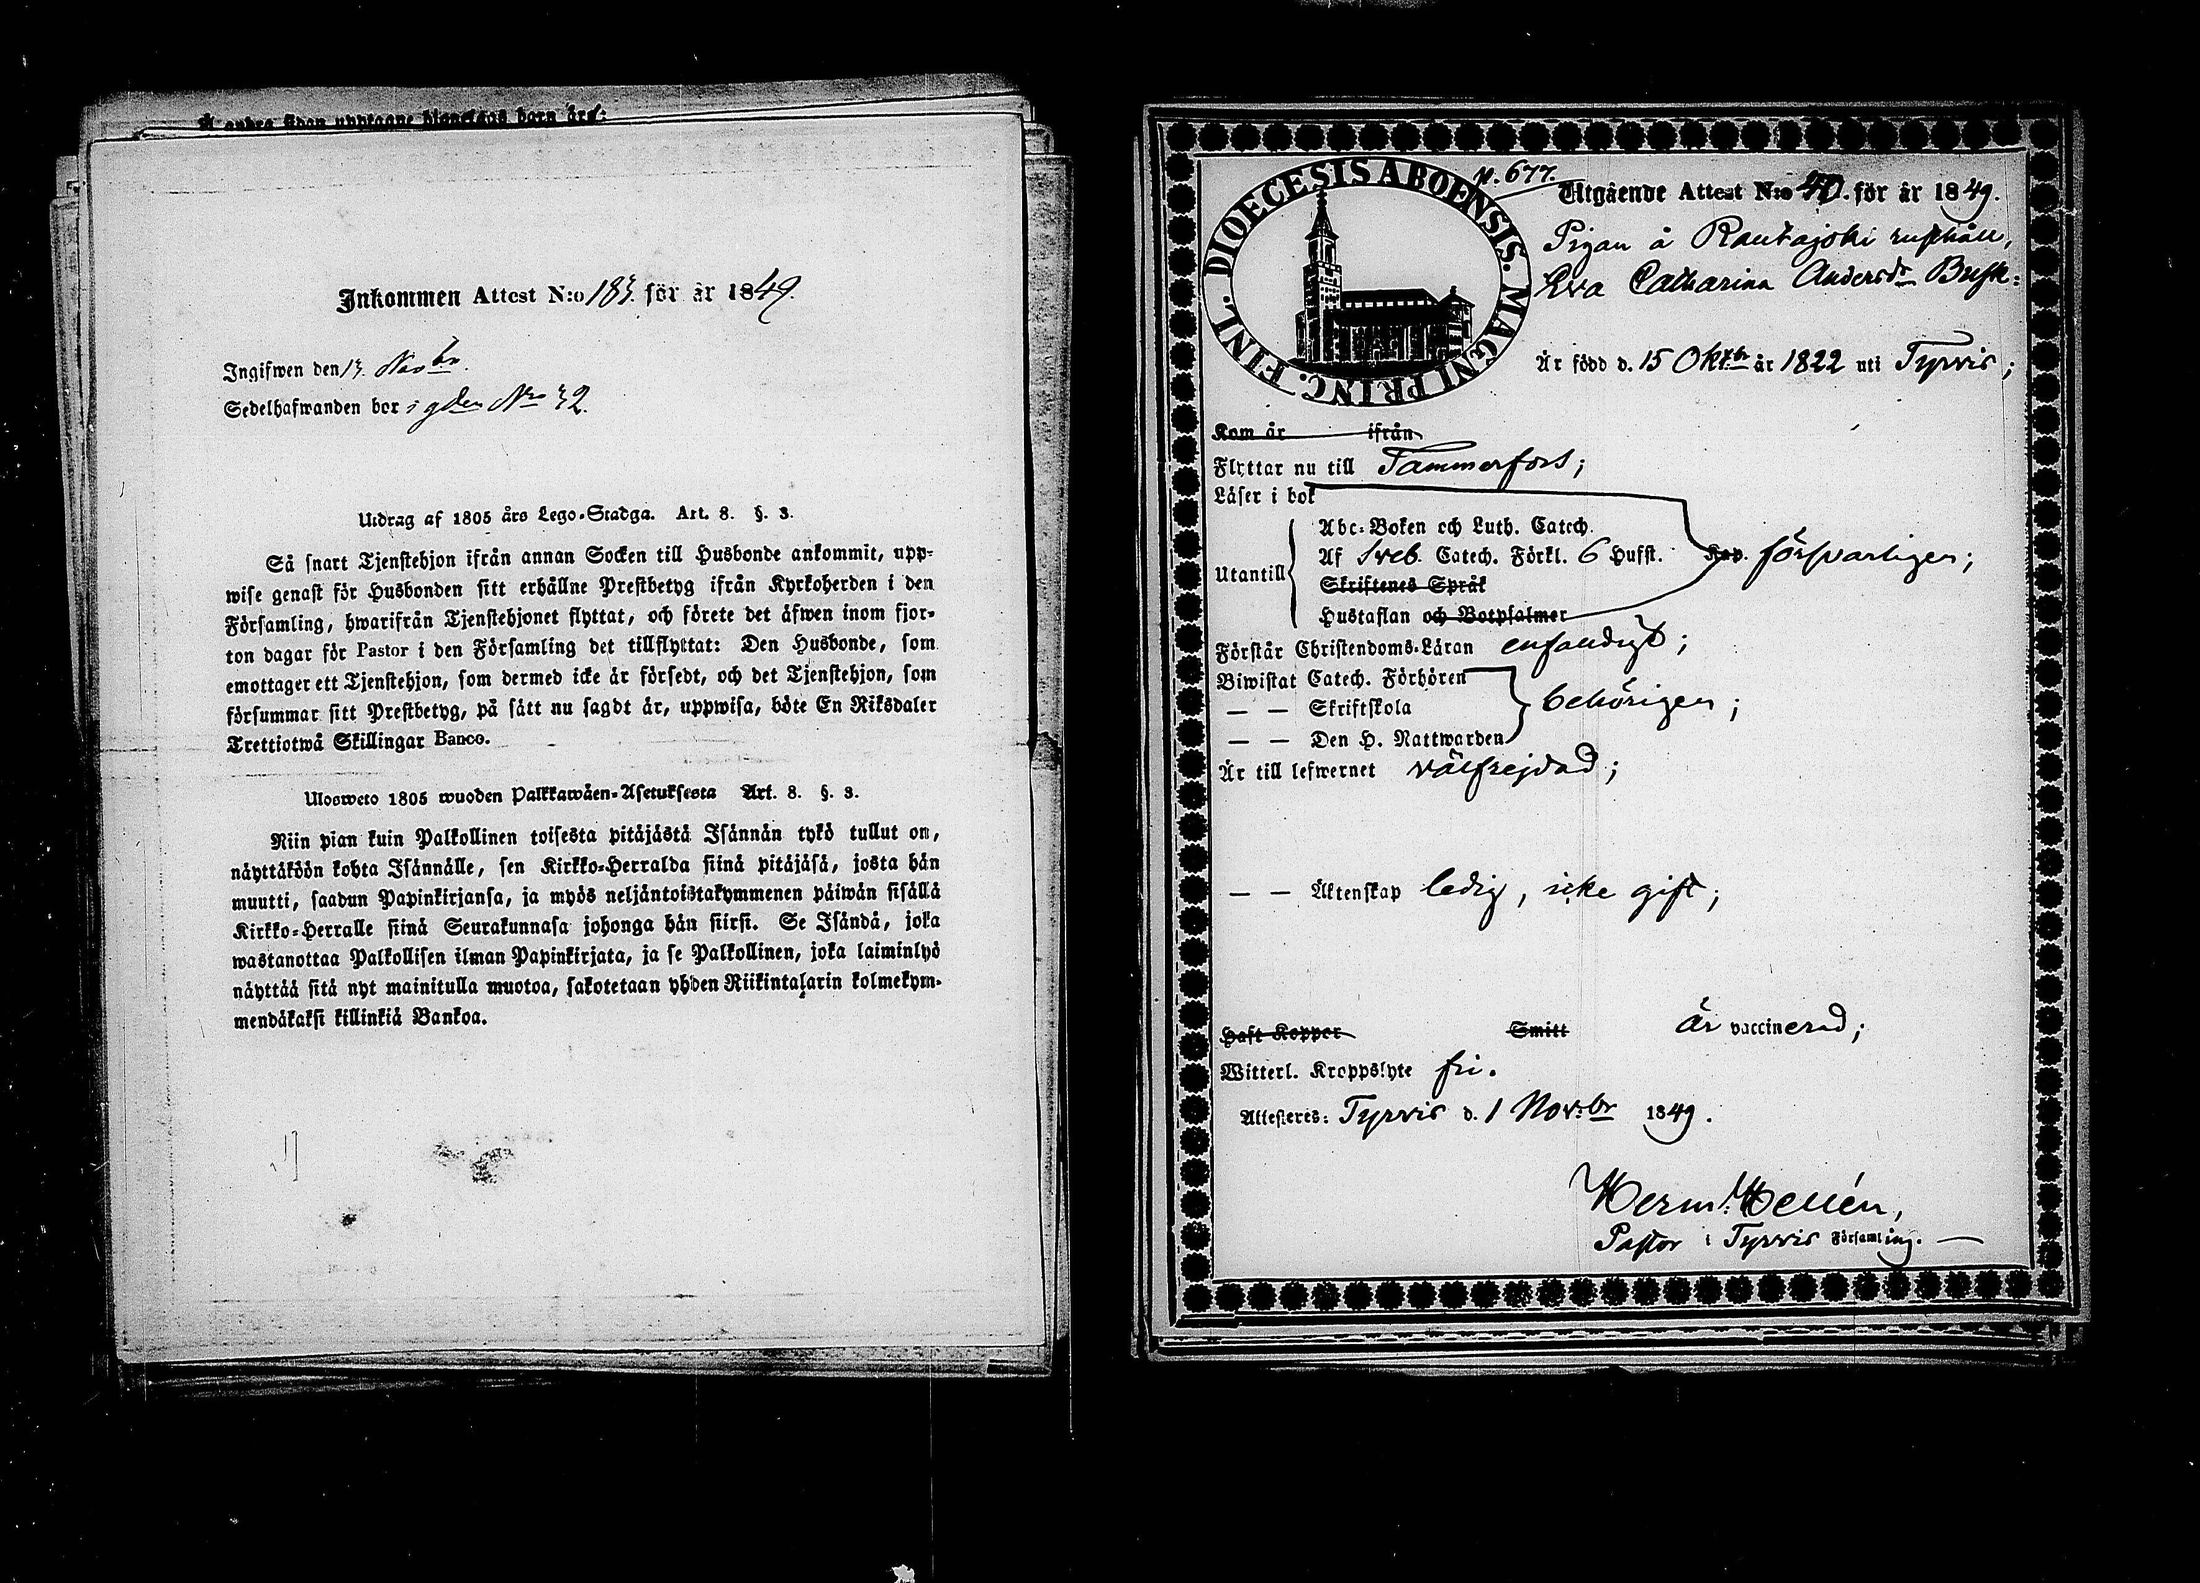 Å andra sidan upptagne hionelags barn äro:
Inkommen Attest N:o 183. för år 1849.
Ingifwen den 13. Novbr.
Sedelhafwanden bor i gden Nro 32.
Utdrag af 1805 års Lego-Stadga. Art. 8. §. 3.
Så snart Tjenstehjon ifrån annan Socken till Husbonde ankommit, upp-
wise genast för Husbonden sitt erhållne Prestbetyg ifrån Kyrkoherden i den
Församling, hwarifrån Tjenstehjonet flyttat, och förete det äfwen inom fjor-
ton dagar för Pastor i den Församling det tillflyttat: Den Husbonde, som
emottager ett Tjenstehjon, som dermed icke är försedt, och det Tjenstehjon, som
försummar sitt Prestbetyg, på sätt nu sagdt är, uppwisa, böte En Riksdaler
Trettiotwå Skillingar Banco.
Ulosweto 1805 wuoden Palkkawäen-Asetuksesta Art. 8. §. 3.
Niin pian kuin Palkollinen toisesta pitäjästä Isännän tykö tullut on,
näyttäköön kohta Isännälle, sen Kirkko-Herralda siinä pitäjäsä, josta hän
muutti, saadun Papinkirjansa, ja myös neljäntoistakymmenen päiwän sisällä
Kirkko-Herralle siinä Seurakunnasa johonga hän siirsi. Se Isändä, joka
wastanottaa Palkollisen ilman Papinkirjata, ja se Palkollinen, joka laiminlyö
näyttää sitä nyt mainitulla muotoa, sakotetaan yhden Riikintalarin kolmekym-
mendäkaksi killinkiä Bankoa.
DIOECESIS ABOENSIS. MAGNI PRINC. FINL.
p. 677.
Utgående Attest N:o 40. för år 1849.
Pigan å Rautajoki rusthåll,
Eva Catharina Andersdr Busk:
Är född d. 15 Oktbr år 1822 uti Tyrvis;
Kom år ifrån
Flyttar nu till Tammerfors;
Läser i bok
Utantill
Abc-Boken och Luth. Catech.
Af Sveb. Catech. Förkl. 6 Hufst. Kap. försvarligen;
Skriftenes Språk
Hustaflan och Botpsalmer
Förstår Christendoms-Läran enfaldigt;
Biwistat Catech. Förhören
— — Skriftskola behörigen;
— — Den H. Nattwarden
Är till lefwernet välfrejdad;
— — Äktenskap ledig, icke gift;
Haft Koppor Smitt är vaccinerad;
Witterl. Kroppslyte fri.
Attesteres: Tyrvis d. 1 Novbr 1849.
Herm: Hellén,
Pastor i Tyrvis Församling. —